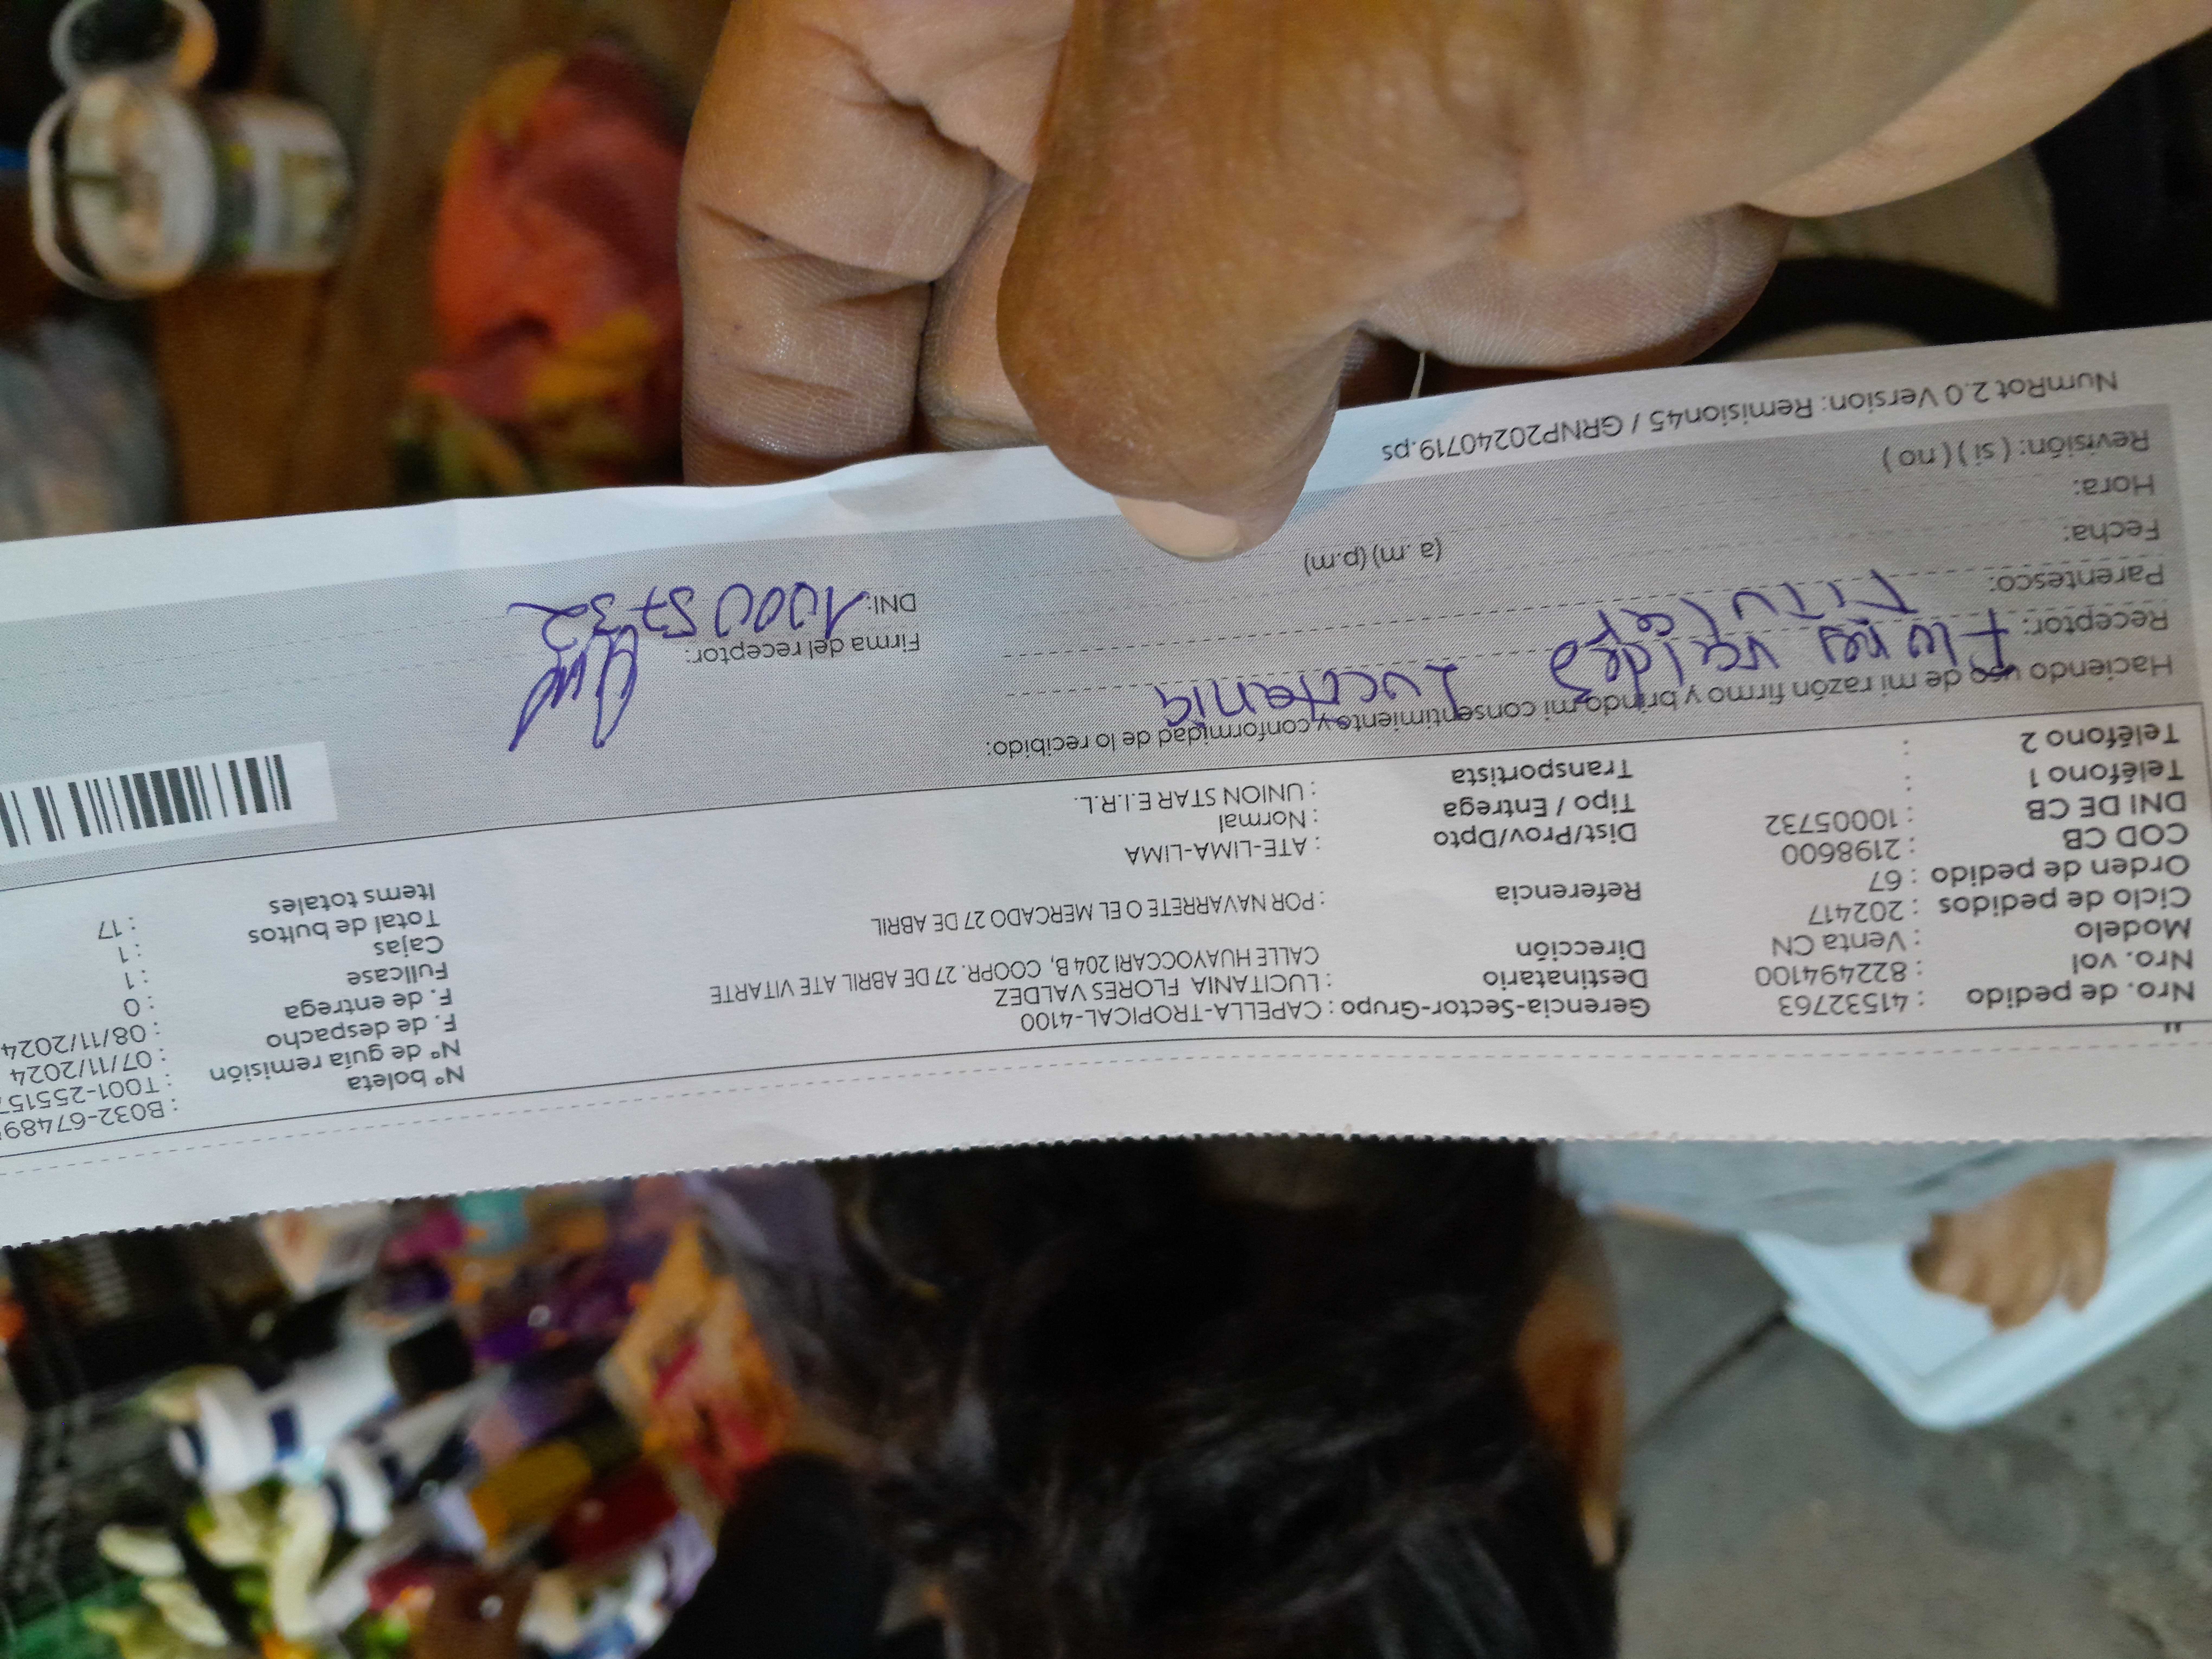 Nro. de pedido : 41532763
Nro. vol : 822494100
Modelo : Venta CN
Ciclo de pedidos : 202417
Orden de pedido : 67
COD CB : 2198600
DNI DE CB : 10005732
Teléfono 1 :
Teléfono 2 :
Gerencia-Sector-Grupo : CAPELLA-TROPICAL-4100
Destinatario : LUCITANIA FLORES VALDEZ
Dirección CALLE HUAYOCCARI 204 B, COOPR. 27 DE ABRIL ATE VITARTE
Referencia : POR NAVARRETE O EL MERCADO 27 DE ABRIL
Dist/Prov/Dpto : ATE-LIMA-LIMA
Tipo / Entrega : Normal
Transportista : UNION STAR E.I.R.L.
N° boleta : B032-67489
N° de guía remisión : T001-25515
F. de despacho : 07/11/2024
F. de entrega : 08/11/2024
Fullcase : 0
Cajas : 1
Total de bultos : 1
Items totales : 17
Haciendo uso de mi razón firmo y brindo mi consentimiento y conformidad de lo recibido:
Receptor: Flores Valdez
Parentesco: Titular
Fecha:
Hora: (a.m) (p.m)
Revisión: ( sí ) ( no )
Firma del receptor:
DNI: 10005732
NumRot 2.0 Version: Remision45 / GRNP20240719.ps